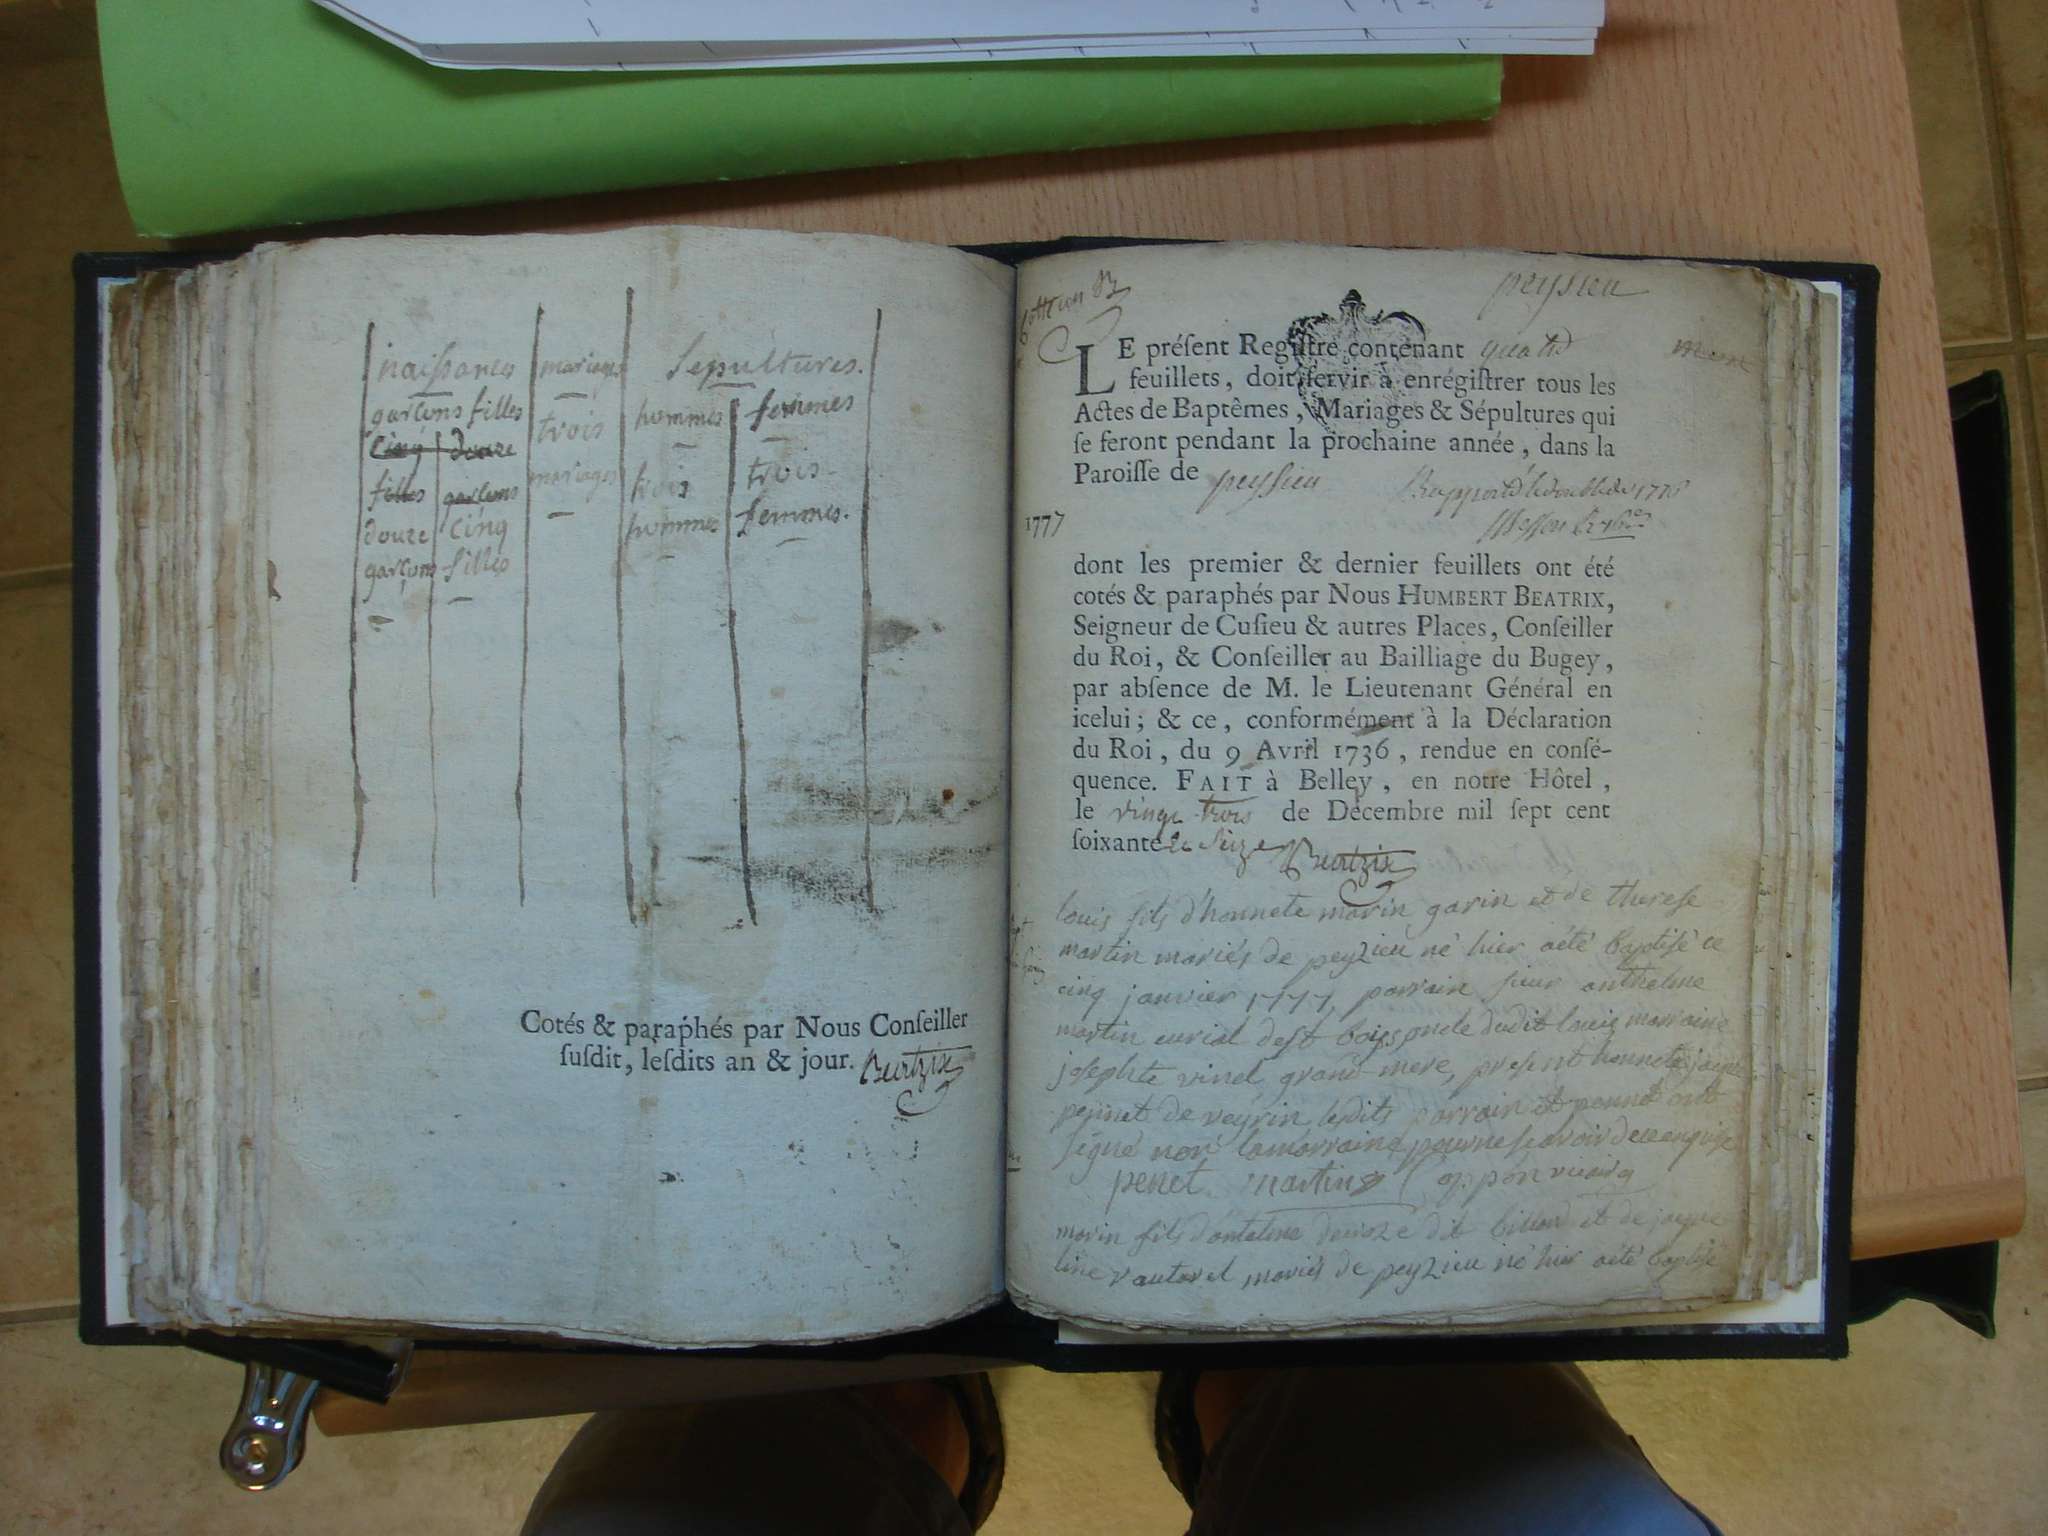 naissances mariages sépultures.
garçons filles trois hommes femmes
cinq douze
filles garçons mariages trois trois
douze cinq hommes femmes.
garçons filles
Cotés & paraphés par Nous Conſeiller
ſuſdit, leſdits an & jour. Beatrix
peysieu
LE préſent Regiſtre contenant
feuillets, doit ſervir à enrégiſtrer tous les
Actes de Baptêmes, Mariages & Sépultures qui
ſe feront pendant la prochaine année, dans la
Paroiſſe de peyssieu
1777
dont les premier & dernier feuillets ont été
cotés & paraphés par Nous HUMBERT BEATRIX,
Seigneur de Cuſieu & autres Places, Conſeiller
du Roi, & Conſeiller au Bailliage du Bugey,
par abſence de M. le Lieutenant Général en
icelui; & ce, conformément à la Déclaration
du Roi, du 9 Avril 1736, rendue en conſé-
quence. FAIT à Belley, en notre Hôtel,
le vingt trois de Décembre mil ſept cent
ſoixante & seize Beatrix
louis fils d'honnete marin garin et de therese
martin mariés de peyzieu né hier aété baptisé ce
cinq janvier 1777, parrain sieur anthelme
martin curial de st bois oncle dudit louis marraine
josephte vinel grand mere, present honnete
pennet de veyrin lesdits parrain et pennet ont
signé non lamarraine pour ne scavoir de ce enquise
penet martin vicaire
marin fils d'antelme dit billiod et de jacque
line vautaret mariés de peyzieu né hier aété baptisé